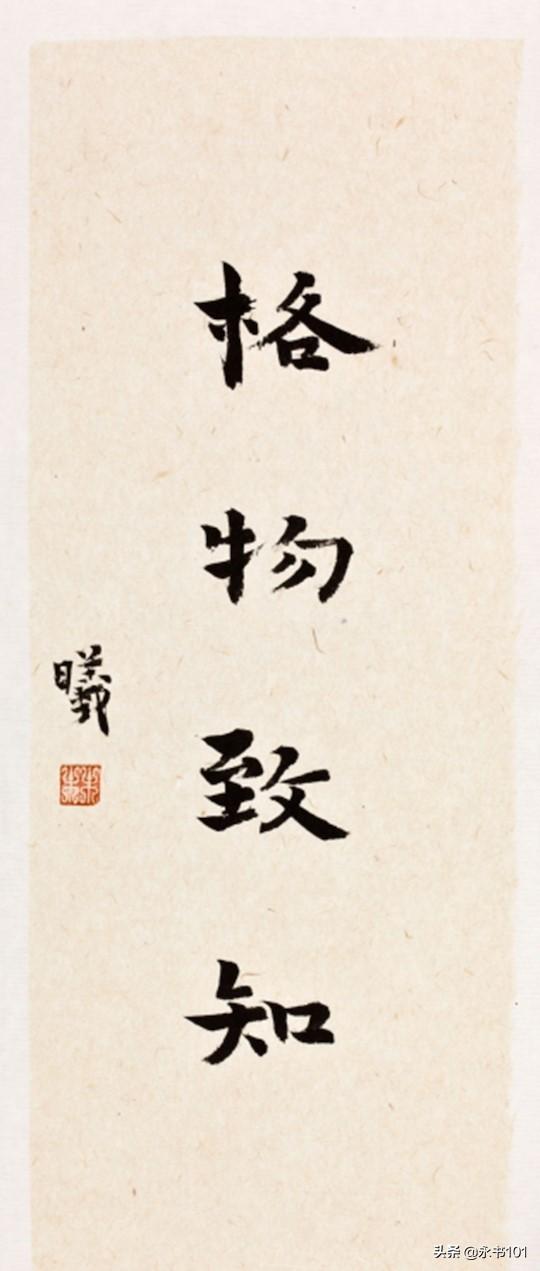 格物致知
曦
头条 @永书101